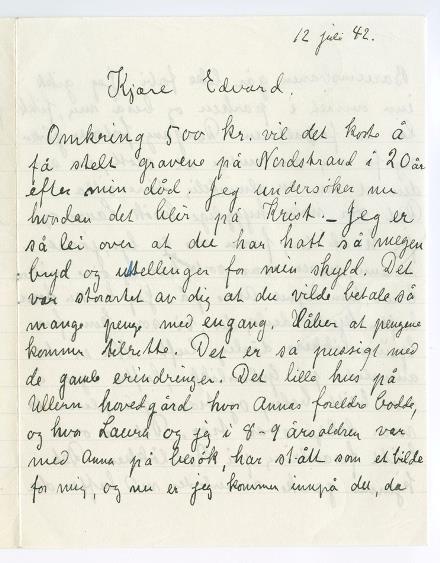 12 juli 42.
Kjære Edvard.
Omkring 500 kr. vil det koste å
få stelt gravene på Nordstrand i 20 år
efter min død. Jeg undersøker nu
hvordan det blir på Krist – Jeg er
så lei over at du har hatt så megen
bryd og utellinger for min skyld. Det
var storartet av dig at du vilde betale så
mange penge med engang. Håber at pengene
kommer tilrette. Det er så pussigt med
de gamle erindringer. Det lille hus på
Ullern hovedgård hvor Annas foreldre bodde,
og hvor Laura og jeg i 8-9 årsaldren var
med Anna på besøk, har stått som et bilde
for mig, og nu er jeg kommen innpå det, da